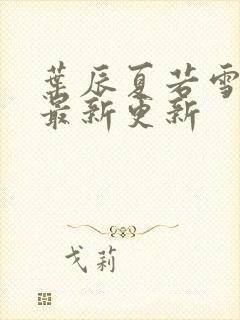 葉辰夏若雪
最新更新
戈莉